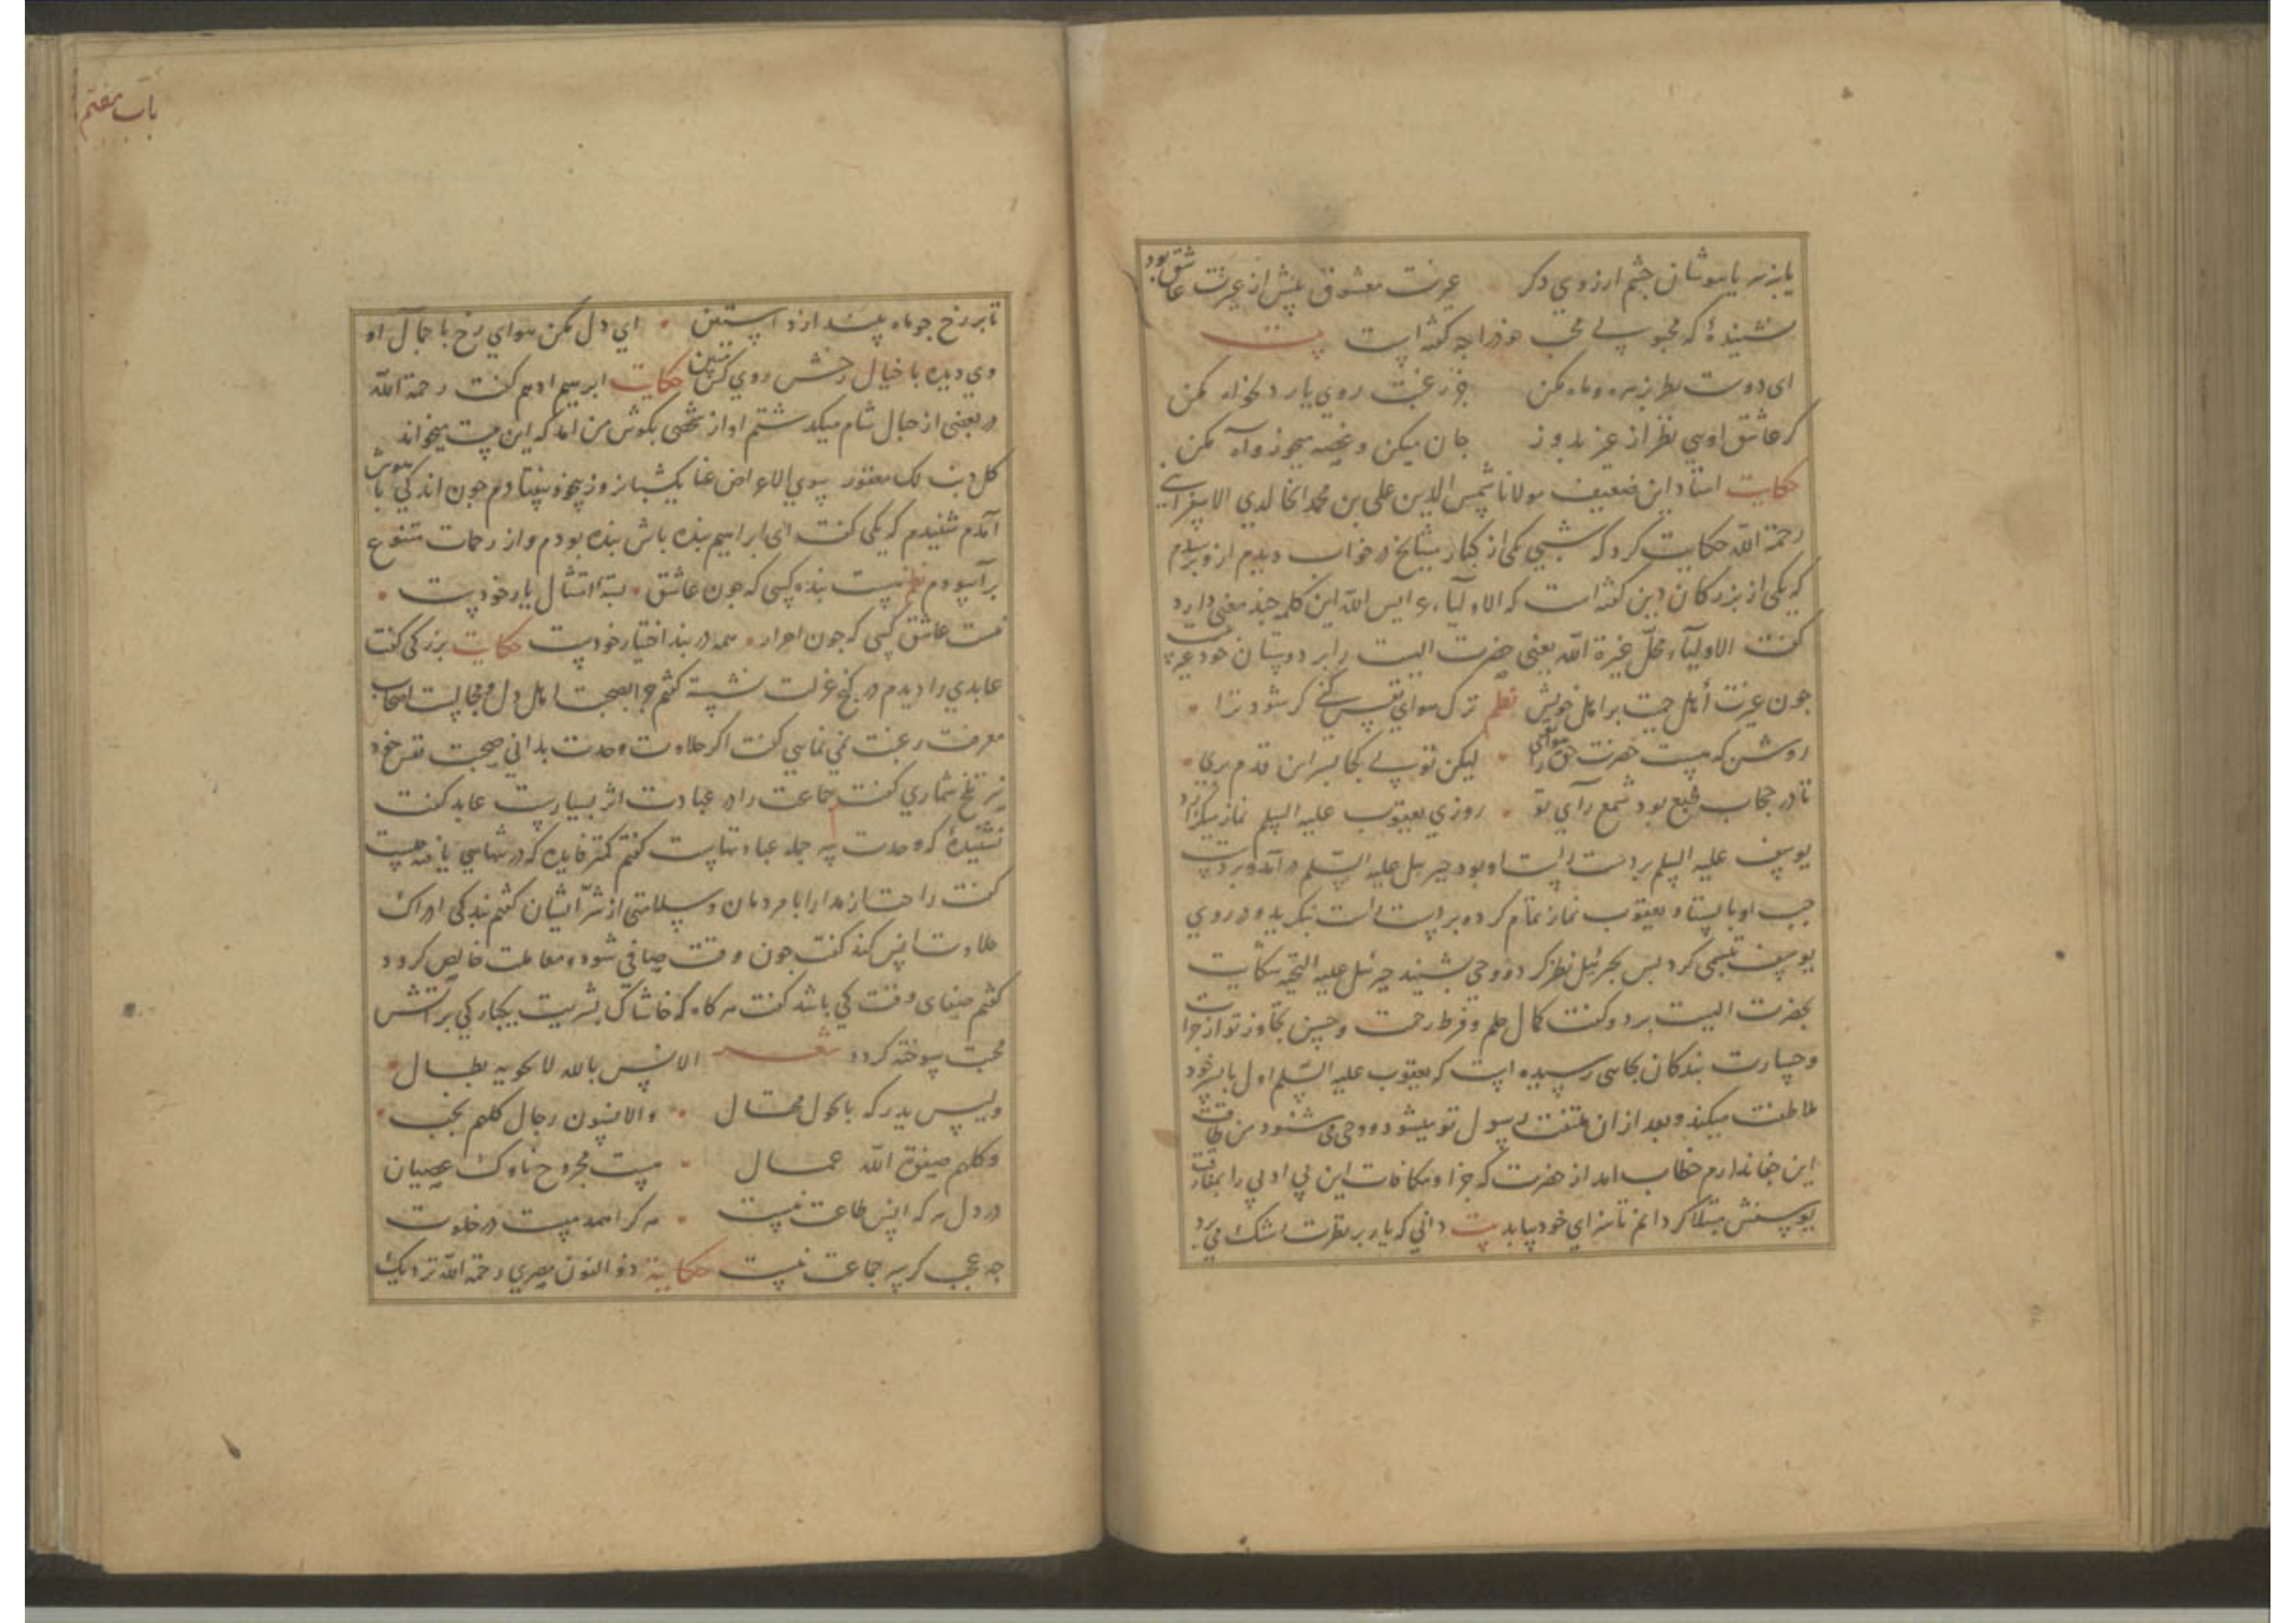 عاشق بود
یا بزیر پا بپوشان چشم ارزوی دکر غیرت معشوق پیش از غیرت
نشنیدهٔ که محبوب با محب خود را چه کفته است بیت
ای دوست نظر بزهره و ماه مکن جز رغبت روی یار دلخواه مکن
کر عاشق اویی نظر از غیر بدوز جان میکن و غصه میخور و آه مکن
حکایت استاد این ضعیف مولانا شمس الدین علی بن محمد الخالدی الاسفراینی
رحمة الله حکایت کرد که شبی یکی از کبار مشایخ در خواب دیدم ازو پرسیدم
که یکی از بزرکان دین کفته است که الاولیاء عرایس الله این کلمه چند معنی دارد
کفت الاولیاء محل غیرة الله یعنی حضرت الهیت را بر دوستان خود غیرتیست
چون غیرت أهل حمیت بر اهل خویش نظم ترک هوای نفس کنی کر شود ترا
روشن که هست حضرت حق را لیکن تو بی کجا بسر این قدم بری
تا در حجاب طبع بود شمع رآی تو روزی یعقوب علیه السلم نماز میکزارد
یوسف علیه السلم بر دست راست او بود جبرئیل علیه السلم در آمد و بر دست
چپ او بایستاد یعقوب نماز تمام کرده بر راست بنکرید و در روی
یوسف تبسمی کرد پس بجبرئیل نظر کرد و وحی بشنید جبرئیل علیه التحیه شکایت
بحضرت الهیت برد و کفت کمال حلم و فرط رحمت و حسن تجاوز تو از جرات
و جسارت بندکان بجایی رسیده است که یعقوب علیه السلم اول با پسر خود
ملاطفت میکند و بعد از ان ملتفت رسول تو میشود و وحی می شنود من طاقت
این جفا ندارم خطاب امد از حضرت که جزا و مکافات این بی ادبی را بمفارقت
یوسفش مبتلا کردانم تا سزای خود بیابد بیت دانی که یار بر نظرت رشک می برد
باب هفتم
تا بر رخ چو ماه پسندارد استین ای دل مکن هوای رخ با جمال او
وی دیده با خیال رخش روی کس مبین حکایت ابرهیم ادهم کفت رحمة الله
در بعضی از جبال شام میکدشتم اواز شخصی بکوش من امد که این بیت میخواند
کل ذنب لک مغفور سوی الاعراض عنا یکشبانروز بیخود بیفتادم چون اندکی با هوش
آمدم شنیدم که یکی کفت ای ابراهیم بنده باش بنده بودم و از رحمات متنوع
برآسودم نظم نیست بنده کسی که چون عاشق بستهٔ امتثال یار خودست
نیست عاشق کسی که چون احرار همه در بند اختیار خودست حکایت بزرکی کفت
عابدی را دیدم در کنج عزلت نشسته کفتم چرا بصحبت اهل دل و مجالست اصحاب
معرفت رغبت نمی نمایی کفت اکر حلاوت وحدت بدانی صحبت نفس خود
نیز تلخ شماری کفت جماعت را در عبادت اثر بسیارست عابد کفت
نشنیدهٔ که وحدت سر جمله عبادتهاست کفتم کمتر فایده که در تنهایی یافته چیست
کفت راحت از مدارا با مردمان و سلامتی از شر ایشان کفتم بنده کی ادراک
حلاوت انس کند کفت چون وقت صافی شود و معاملت خالص کردد
کفتم صفای وقت کی باشد کفت هر کاه که خاشاک بشریت یکبارکی بر آتش
محبت سوخته کردد شعر الانس بالله لا یحویه بطال
ولیس یدرکه بالحول محتال والانسون رجال کلهم نجب
وکلهم صفوة الله عمال هست مجروح ناوک عصیان
در دل هر که انس طاعت نیست هر کرا همدمیست در خلوت
چه عجب کر سر جماعت نیست حکایة ذو النون مصری رحمة الله نزدیک